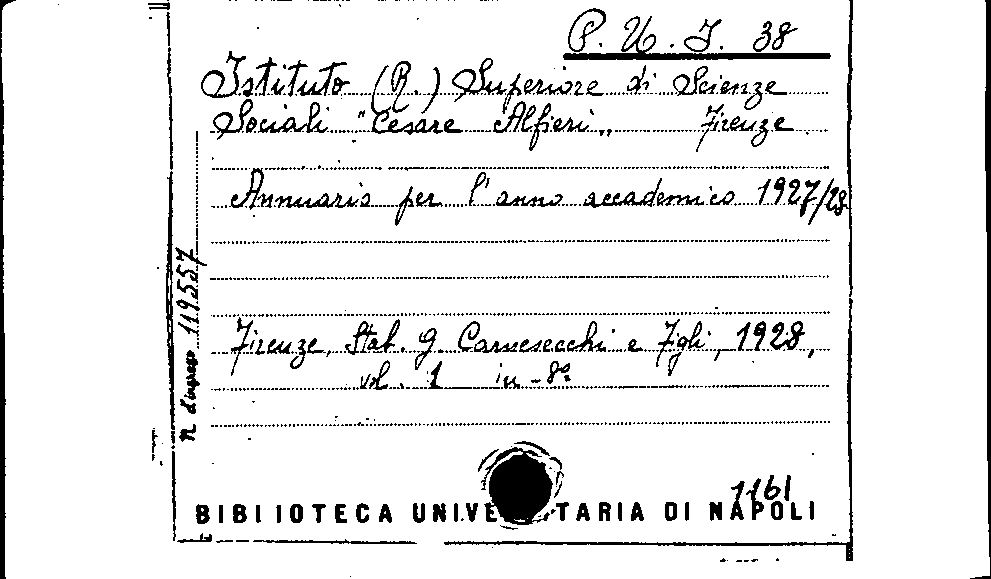 P. U. I. 38
Istituto (R.) Superiore di Scienze
Sociali "Cesare Alfieri„ Firenze
Annuario per l'anno accademico 1927/28
Firenze, Stab. G. Carnesecchi e Figli, 1928,
vol. 1 in-8º
n. d'ingresso 119557
1161
BIBLIOTECA UNIVE TARIA DI NAPOLI